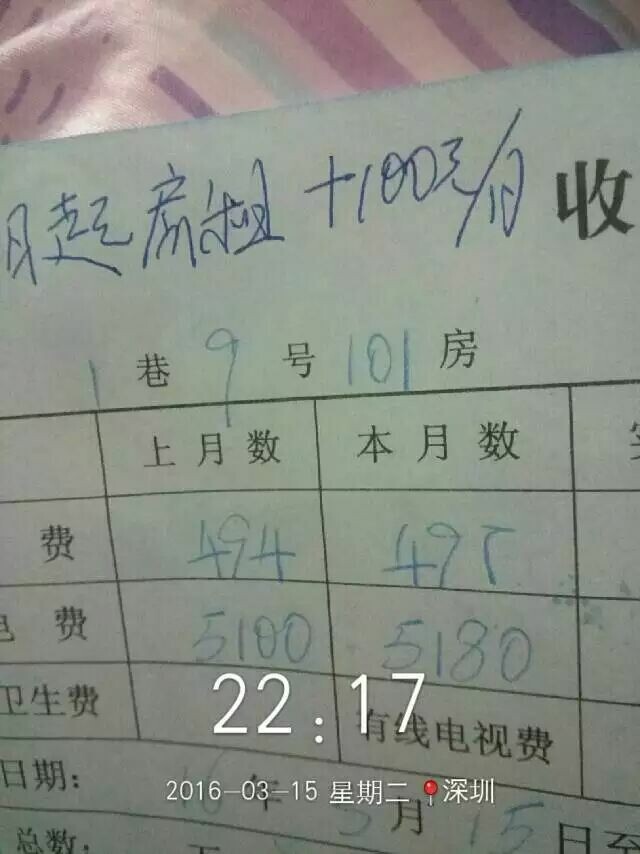 月起房租 +100元/月 收
1 巷 9 号 101 房
上月数 本月数 实
费 494 495
电 费 5100 5180
卫生费 有线电视费
22:17
2016-03-15 星期二 深圳
日期: 16 年 3 月 15 日至
总数: